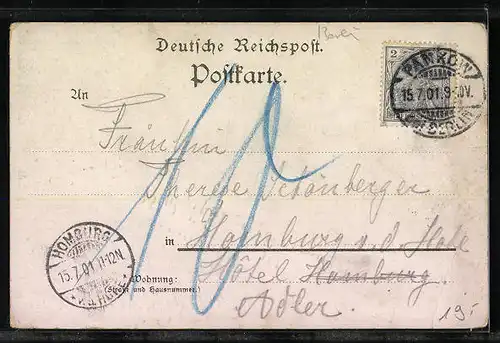 Deutsche Reichspost.
Postkarte.
2
PANKOW
15.7.01.9-10V.
BERLIN
An
Fräulein
Therese Schönberger
in Homburg v.d. Höhe
Hôtel Homburg
Adler.
Wohnung:
(Straße und Hausnummer.)
HOMBURG
15.7.01.11-12N.
10
19.-